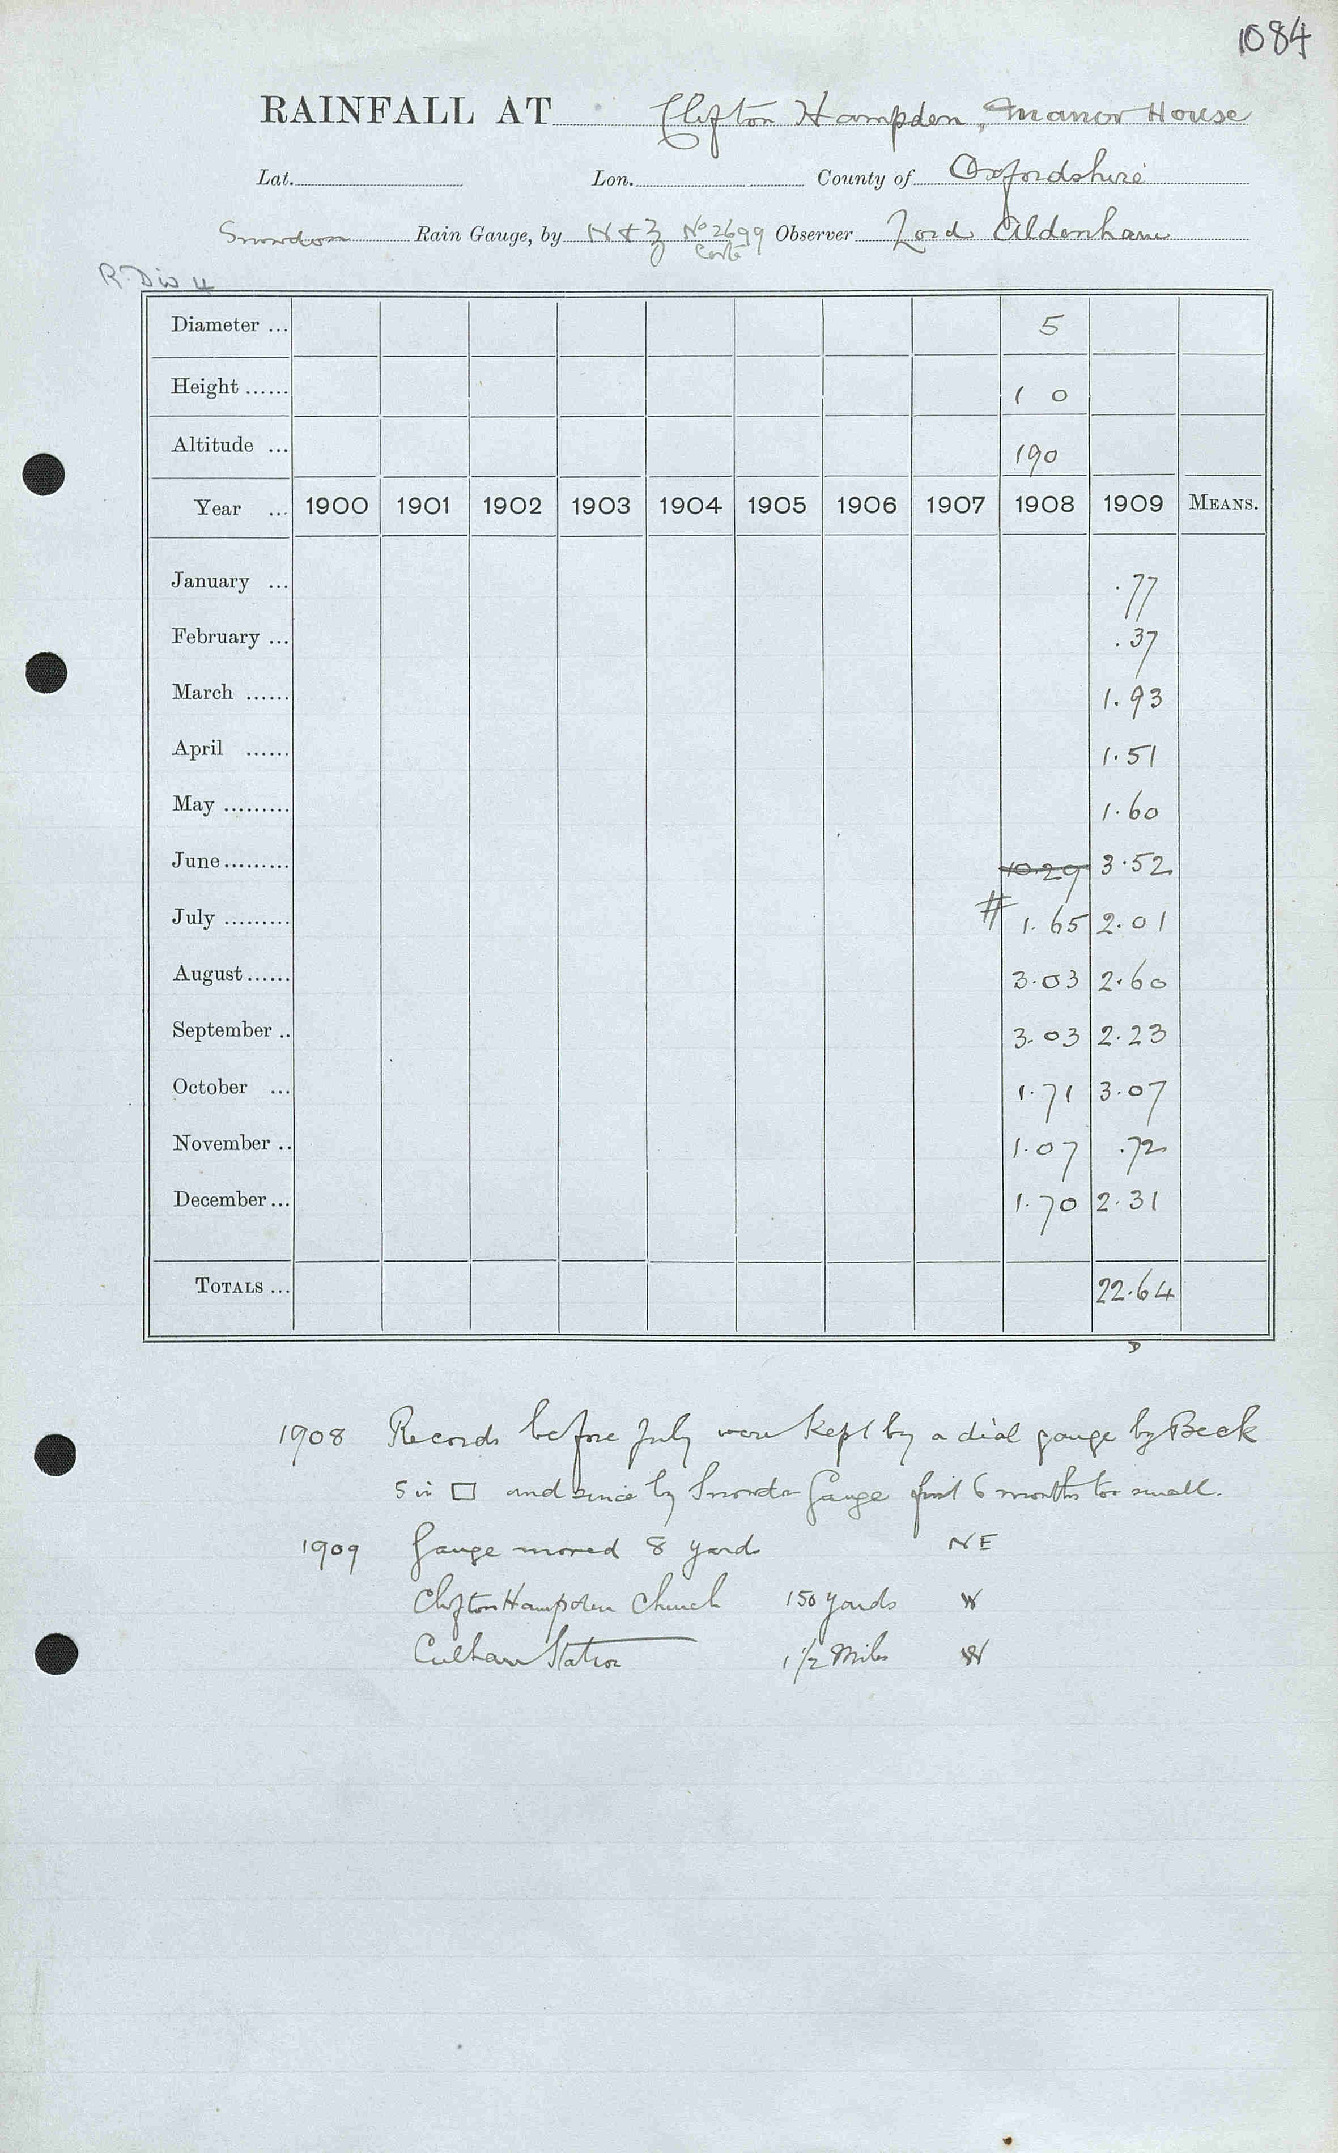 1084
RAINFALL AT Clifton Hampden, Manor House
Lat. Lon. County of Oxfordshire
Snowdon Rain Gauge, by N & Z No 2699 Observer Lord Aldenham
R. Div 4
Diameter ... 5
Height ...... 1 0
Altitude ... 190
Year ... 1900 1901 1902 1903 1904 1905 1906 1907 1908 1909 MEANS.
January ... .77
February ... .37
March ...... 1.93
April ...... 1.51
May ......... 1.60
June ......... 10.29 3.52
July ......... # 1.65 2.01
August ...... 3.03 2.60
September .. 3.03 2.23
October ... 1.71 3.07
November .. 1.07 .72
December ... 1.70 2.31
TOTALS ... 22.64
D
1908 Records before July were kept by a dial gauge by Beck
5 in □ and since by Snowdon Gauge first 6 months too small.
1909 Gauge moved 8 yards NE
Clifton Hampden Church 150 yards W
Culham Station 1 1/2 Miles W